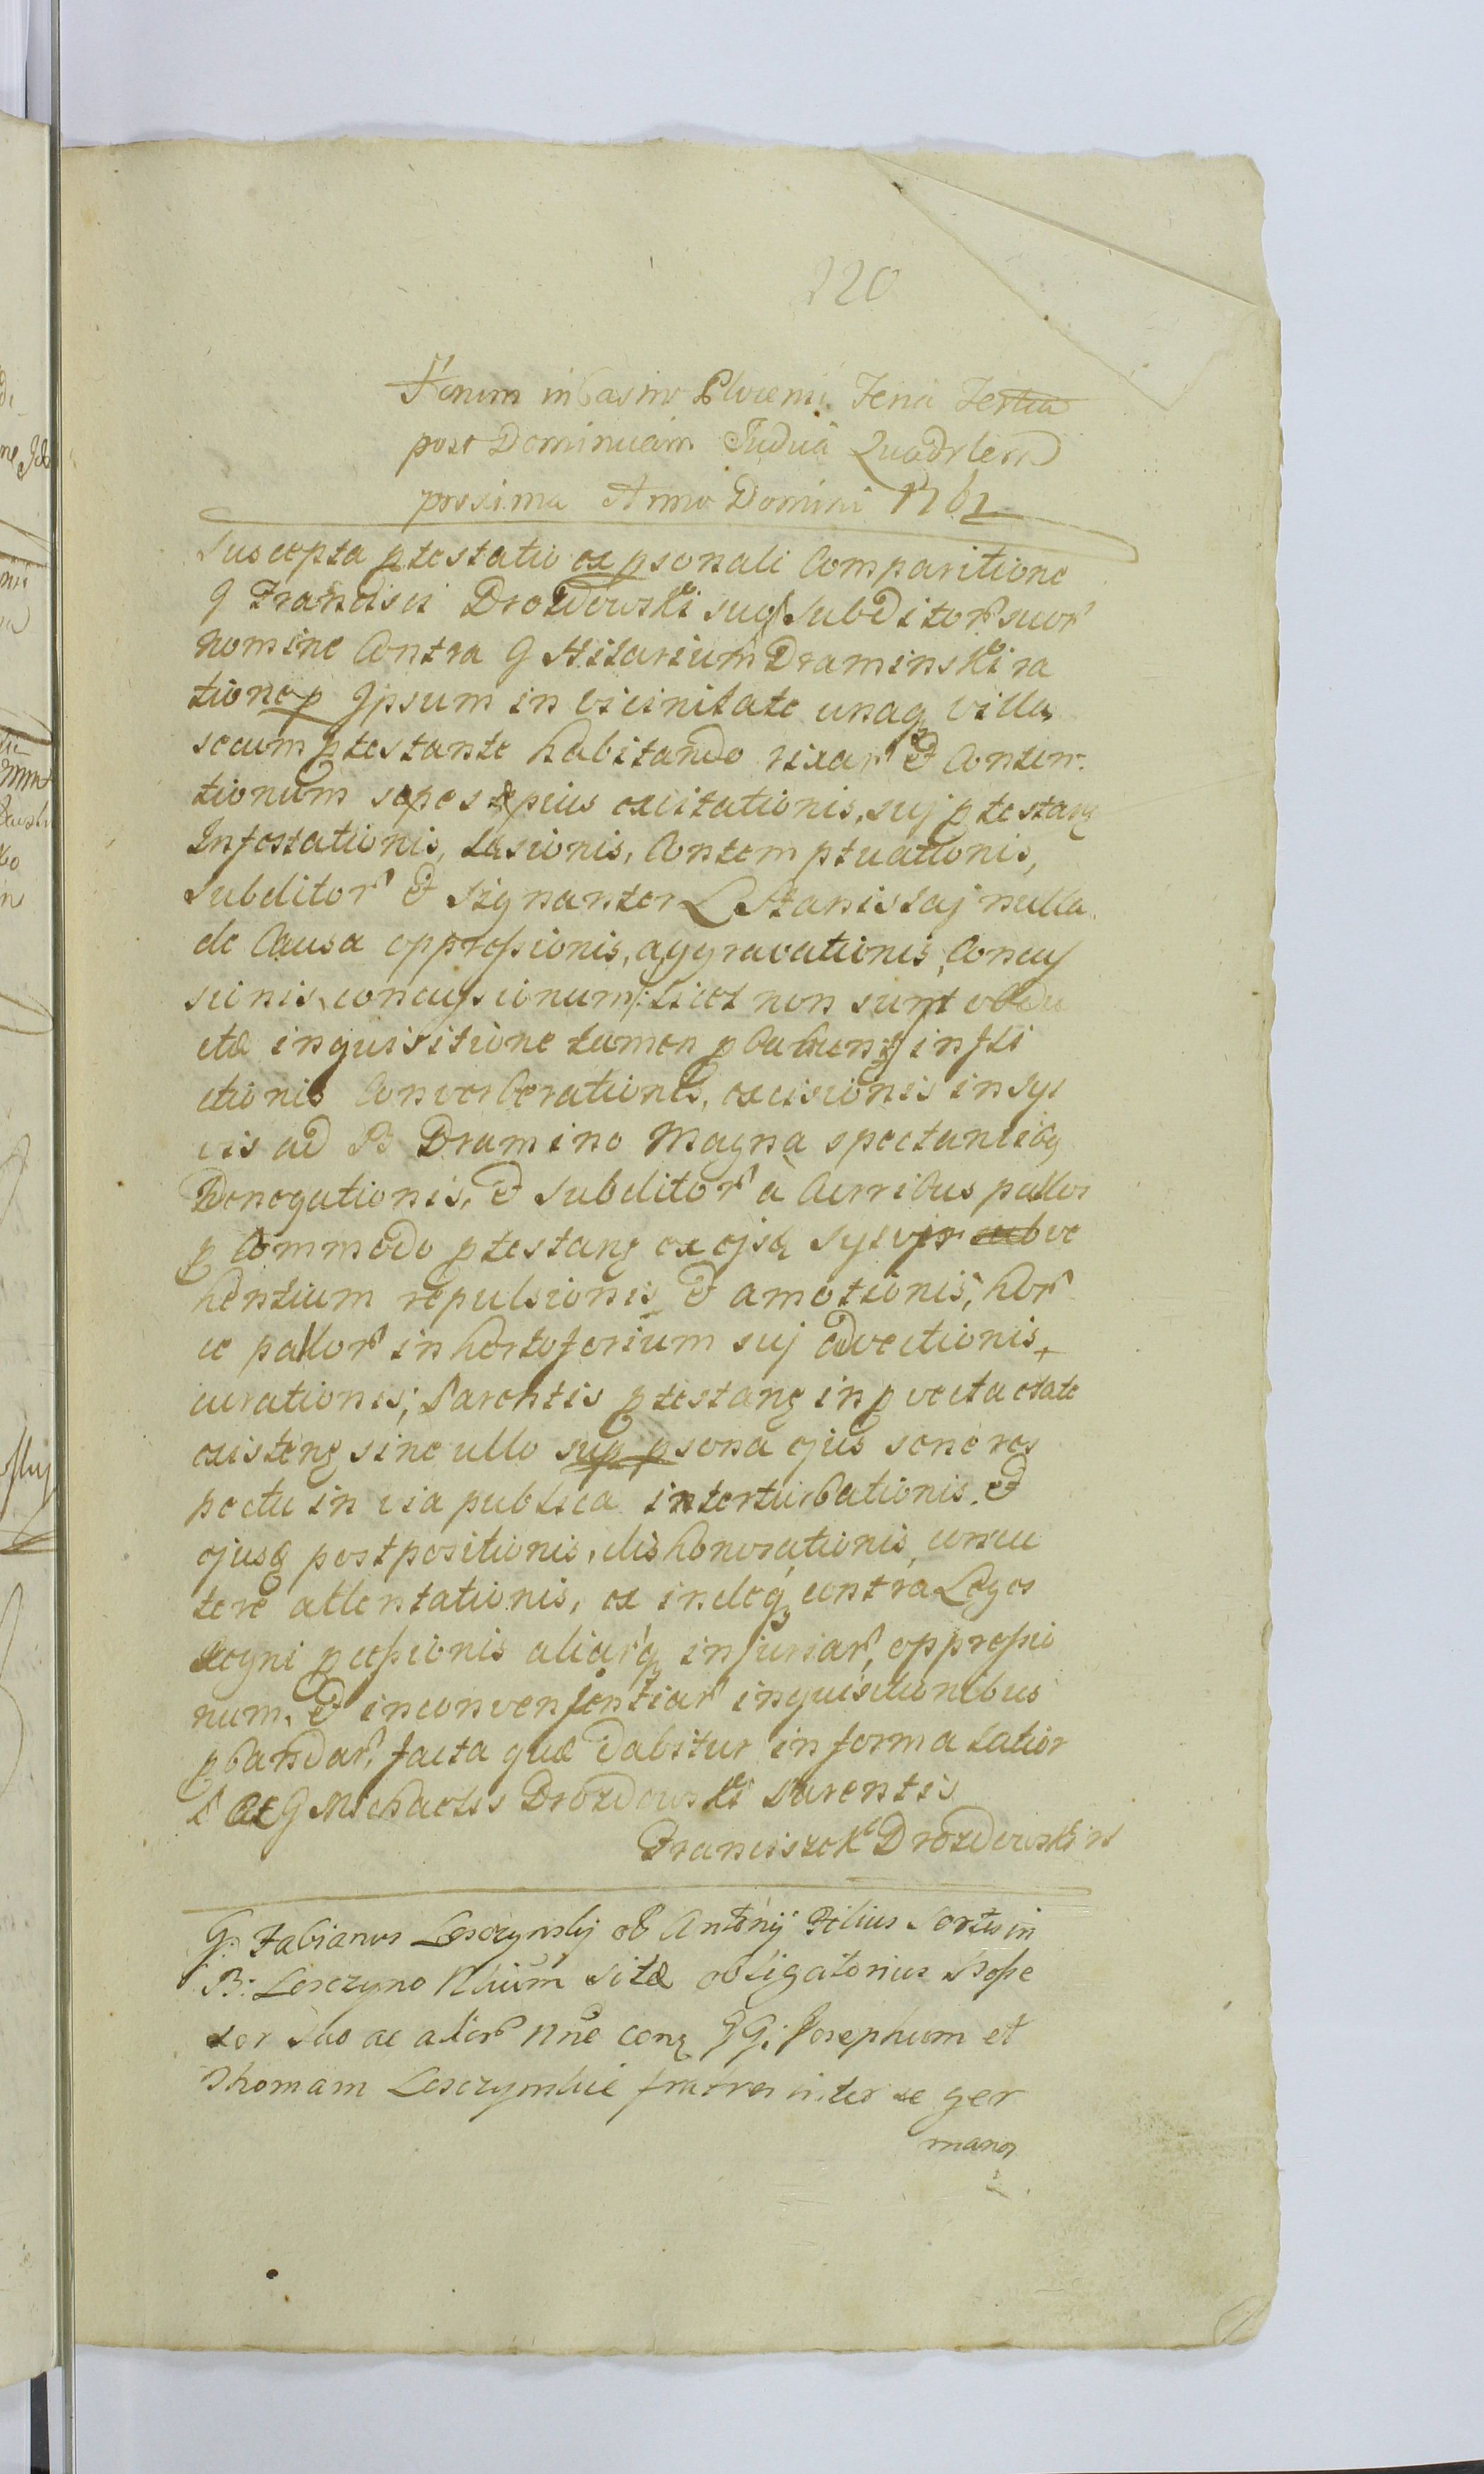 220
Actum in Castro Plocensi Feria Tertia
post Dominicam Judica Quadrlem
proxima Anno Domini 1761
Suscepta ptestatio ex psonali Comparitione
G Francisci Drozdowski suo Subditor suor
nomine Contra G Hilarium Draminski ra
tione p Ipsum in vicinitate unaq villa
secum ptestante habitando rixar et Conten
tionum sepe sepius excitationis, suj ptestang
Infestationis, Lesionis, Contemptuationis,
Subditor et Signanter L Stanislaj nulla
de Causa oppressionis, aggravationis, Concus
sionis, concussionum /: licet non sunt obdu
ctae inquisitione tamen pbabuntur infli
ctionis Converberationis, excisionis in syl
vis ad B Dramino Magna spectantibq
Denegationis, et Subditor à Curribus pallos
p Commodo ptestang ex ejsq sylvjs ve
hentium repulsionis et amotionis, hor
ce pallor in hortoforium suj advectionis,
curationis; Parentis ptestang in pvecta etate
existeng sine ullo sup psona ejus sene res
pectu in via publica interturbationis et
ejusq postpositionis, dishonorationis, concu
tere attentationis, ex indeq contra Leges
Regni pcessionis aliarq injuriar, oppressio
num, et inconvenjentiar inquisitionibus
pbandar, facta quae dabitur in forma latior
S et G Michaelis Drozdowski Parentis
Franciszek Drozdowski m
G: Fabianus Lesczynskj olt Antonij Filius Sortis in
B: Lesczyno Rlium Sitae obligatorius Posse
sor Suo ac alior nne cong GG: Josephum et
Thomam Lesczynskie fratres inter se ger
manos